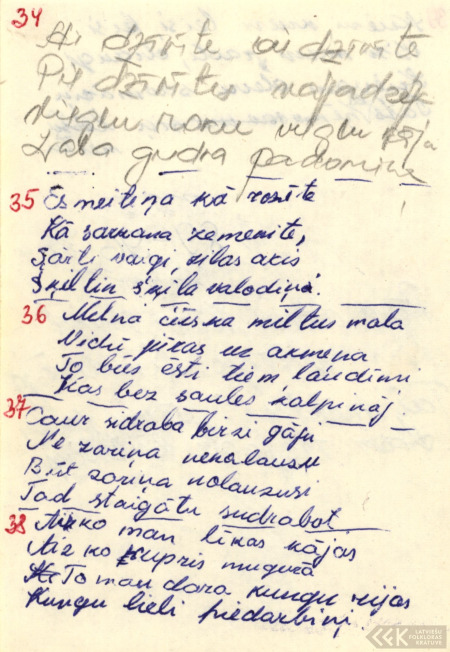 34
Ai dzīvīte ai dzīvīte
Pie dzīvītes vajadzēj
Vieglu roku vieglu kāja
Laba gudra padomiņa
35 Es meitiņa kā rozīte
Kā sarkana zemenīte,
Sārti vaigi, zilas acis
Šķeltin šķila valodiņa.
36 Melna čūska miltus mala
Vidū jūras uz akmeņa
To būs ēsti tiem laudīm,
Kas bez saules kalpināj
37 Caur sidraba birzi gāju
Ne zariņa nenolauzu
Būt zariņa nolauzusi
Tad staigātu sudrabot
38 Aizko man līkas kājas
Aiz ko kupris mugurā
To man dara kungu rijas
Kungu lieli piedarbiņi.
LATVIEŠU
FOLKLORAS
KRĀTUVE